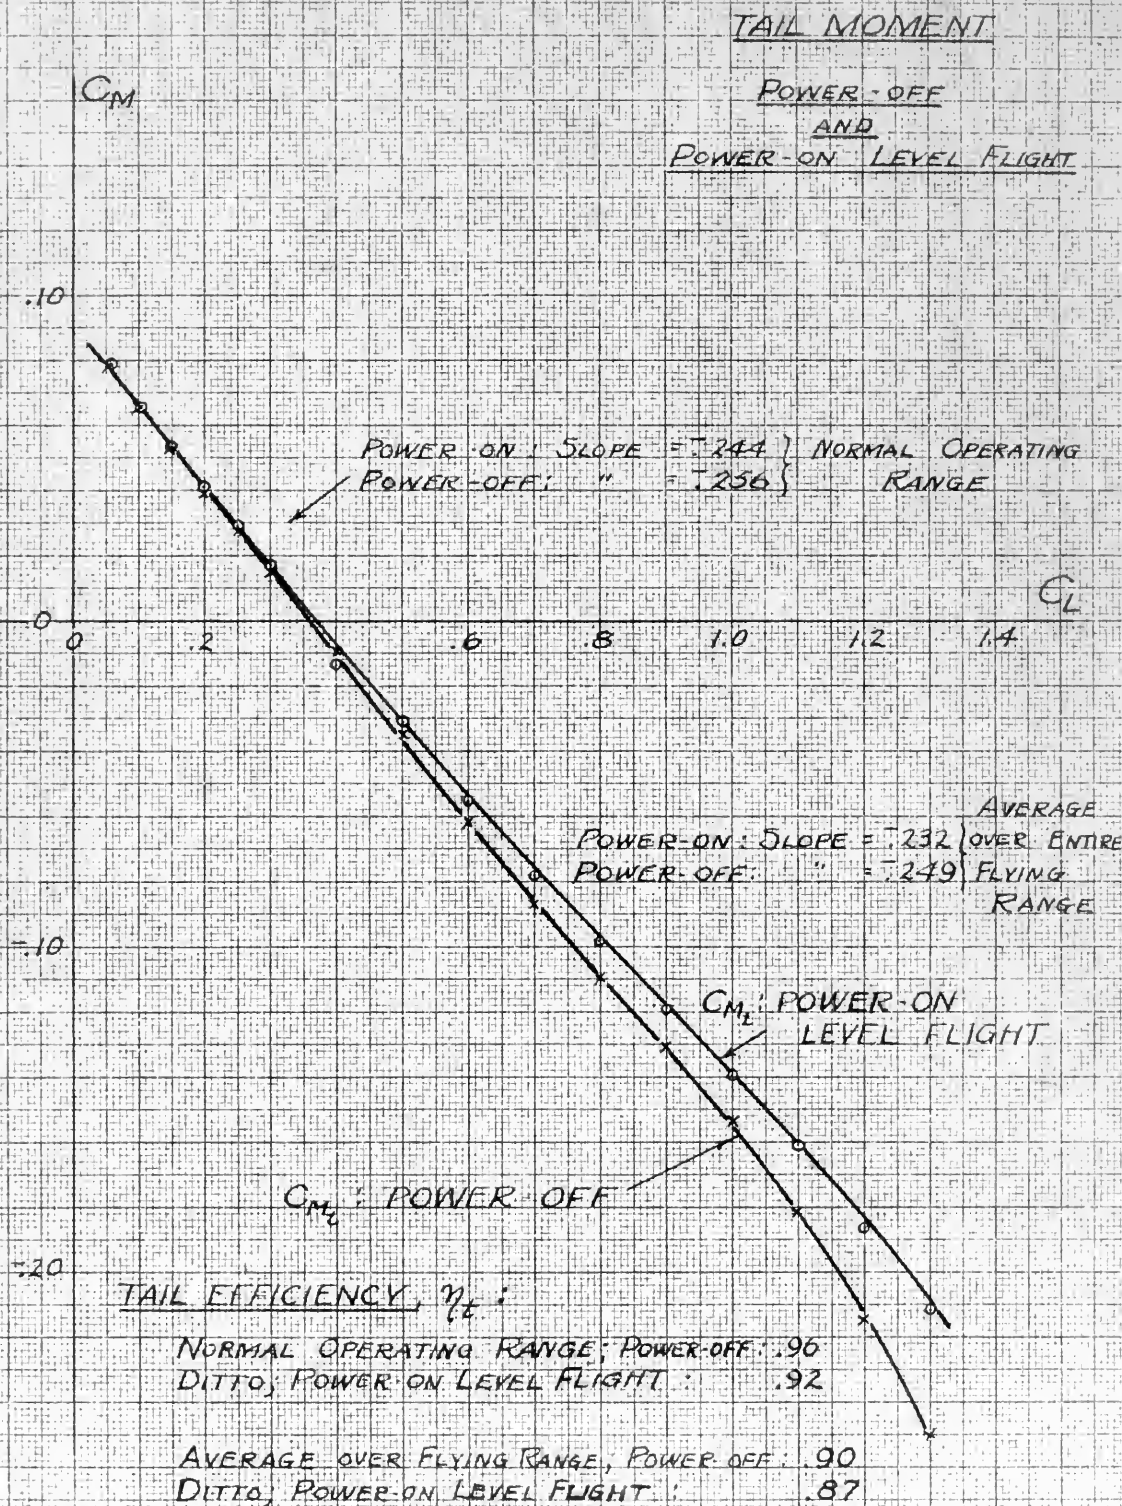 TAIL MOMENT
POWER-OFF
AND
POWER-ON LEVEL FLIGHT
CM
.10
POWER-ON: SLOPE = -.244 } NORMAL OPERATING
POWER-OFF: " = -.256 } RANGE
CL
0
0 .2 .6 .8 1.0 1.2 1.4
AVERAGE
POWER-ON: SLOPE = -.232 } OVER ENTIRE
POWER-OFF: " = -.249 } FLYING
RANGE
-.10
CMt: POWER-ON
LEVEL FLIGHT
CMt: POWER OFF
-.20
TAIL EFFICIENCY, ηt:
NORMAL OPERATING RANGE; POWER-OFF: .96
DITTO; POWER-ON LEVEL FLIGHT: .92
AVERAGE OVER FLYING RANGE; POWER-OFF: .90
DITTO; POWER-ON LEVEL FLIGHT: .87